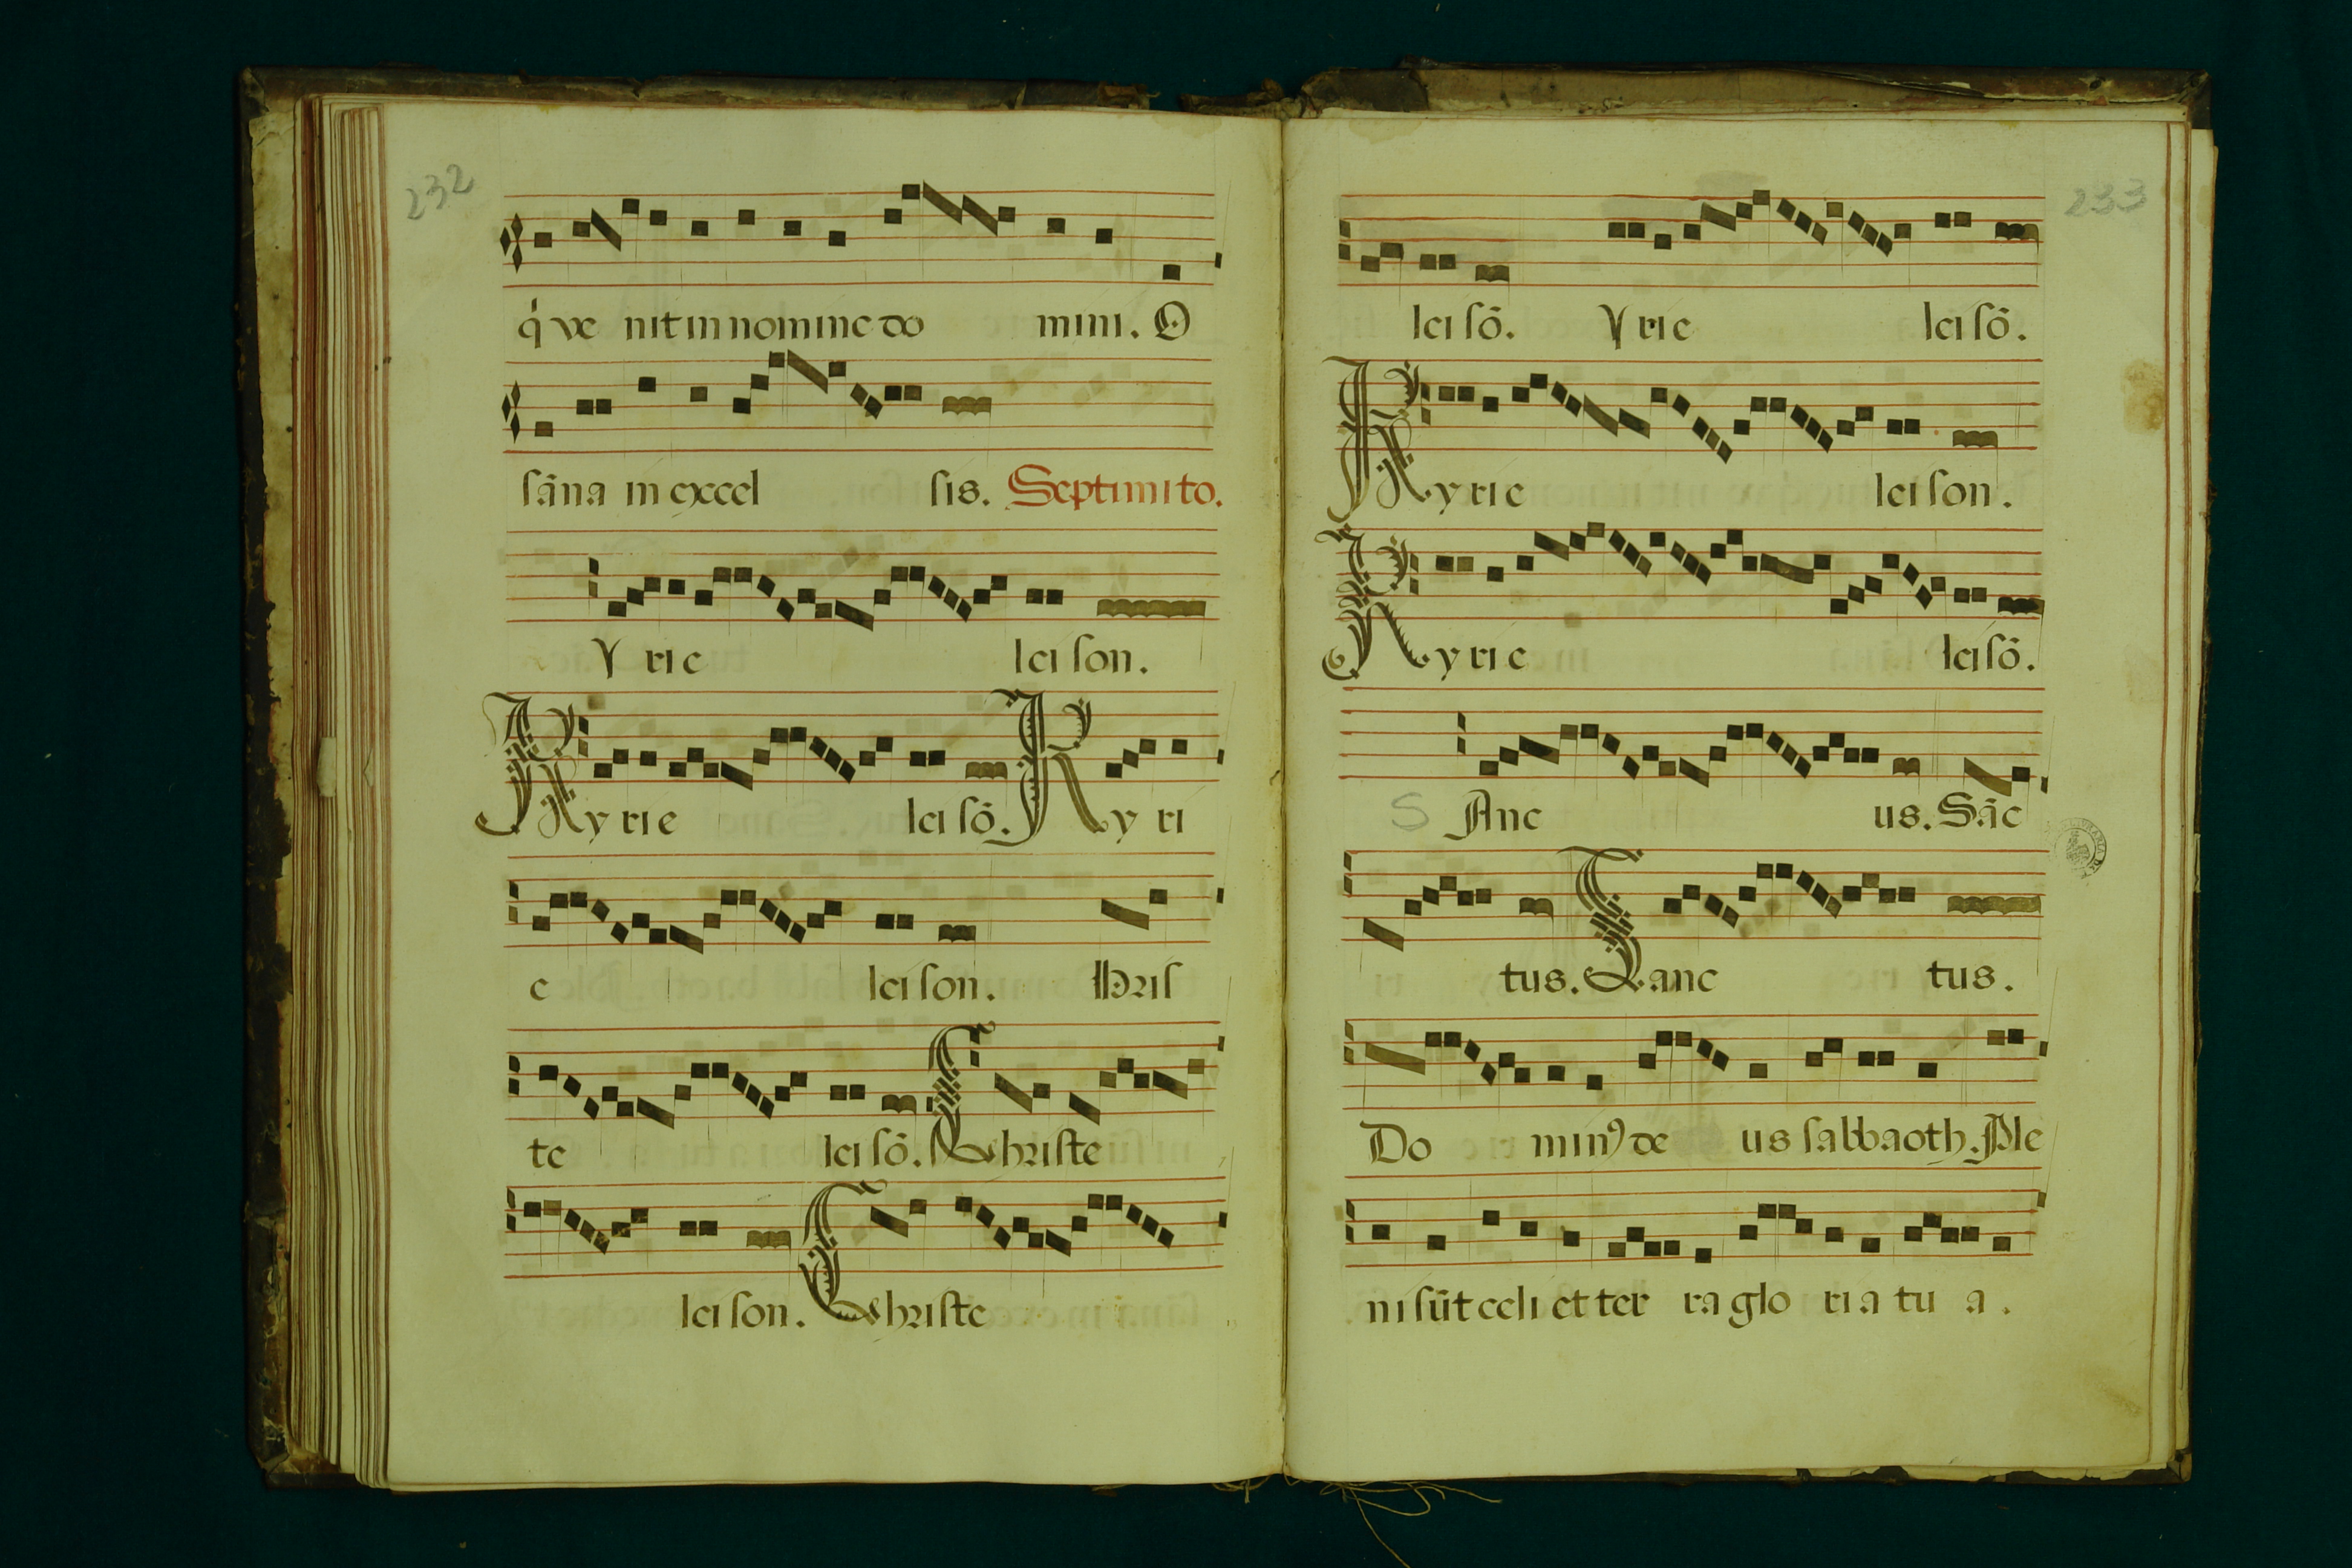 232
q̍ ve nit in nomine do mini. O
sāna in excel sis. Septimi to.
Y rie leison.
Kyrie leisō. Kyri
e leison. Hris
te leisō. Christe
leison. Christe
233
leisō. Yrie leisō.
Kyrie leison.
Kyrie leisō.
S Anc us. Sāc
tus. Sanc tus.
Do minꝰ de us sabbaoth. Ple
ni sūt celi et ter ra glo ria tu a.